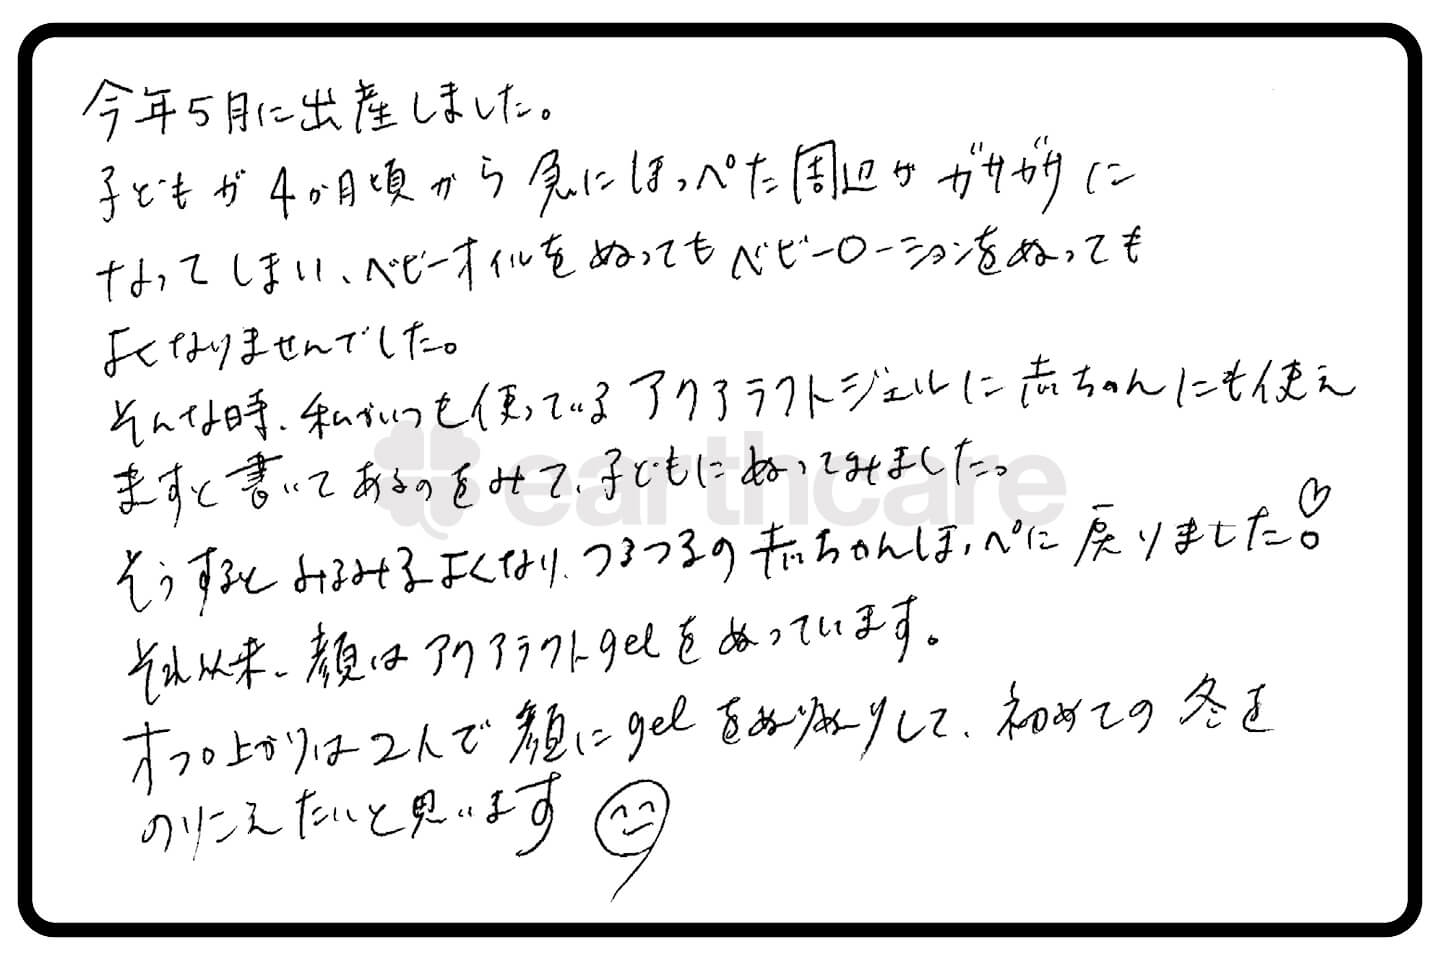 今年5月に出産しました。
子どもが4か月頃から急にほっぺた周辺がガサガサに
なってしまい、ベビーオイルをぬってもベビーローションをぬっても
よくなりませんでした。
そんな時、私がいつも使っているアクアラクトジェルに赤ちゃんにも使え
ますと書いてあるのをみて、子どもにぬってみました。
earthcare
そうするとみるみるよくなり、つるつるの赤ちゃんほっぺに戻りました!
それ以来、顔はアクアラクトgelをぬっています。
オフロ上がりは2人で顔にgelをぬりぬりして、初めての冬を
のりこえたいと思います